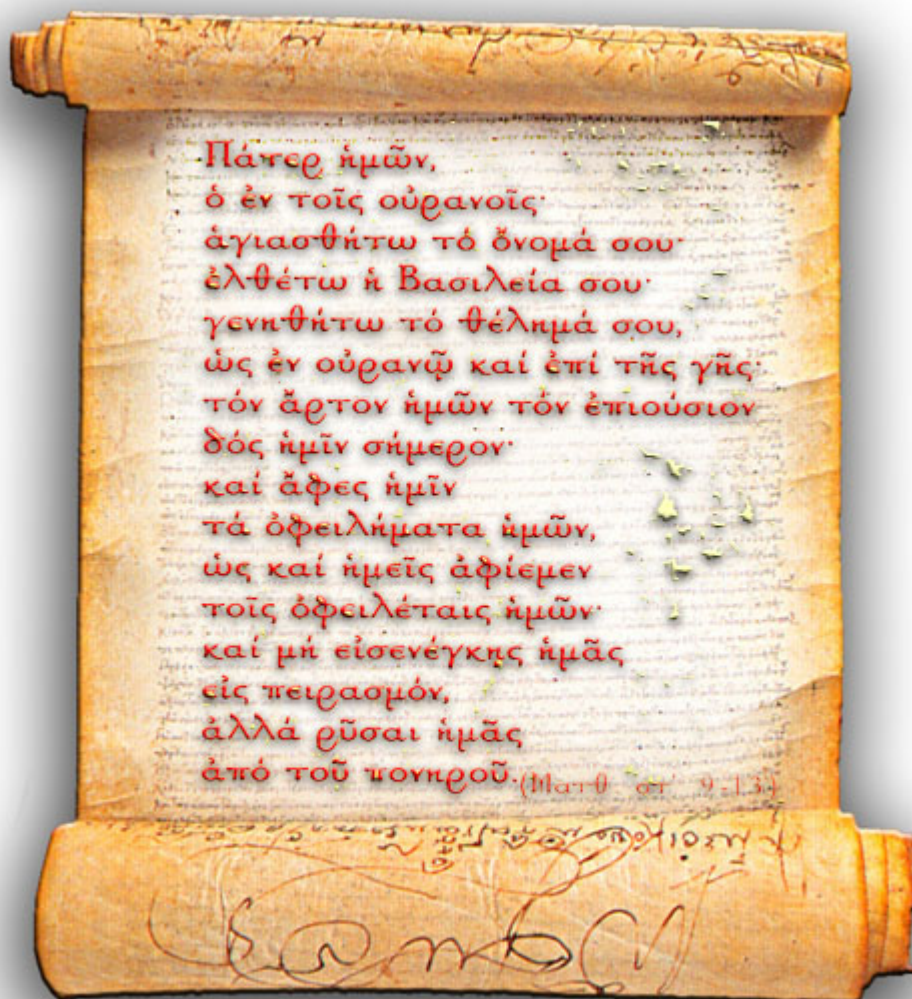 Πάτερ ἡμῶν,
ὁ ἐν τοῖς οὐρανοῖς·
ἁγιασθήτω τό ὄνομά σου·
ἐλθέτω ἡ Βασιλεία σου·
γενηθήτω τό θέλημά σου,
ὡς ἐν οὐρανῷ καί ἐπί τῆς γῆς·
τόν ἄρτον ἡμῶν τόν ἐπιούσιον
δός ἡμῖν σήμερον·
καί ἄφες ἡμῖν
τά ὀφειλήματα ἡμῶν,
ὡς καί ἡμεῖς ἀφίεμεν
τοῖς ὀφειλέταις ἡμῶν·
καί μή εἰσενέγκῃς ἡμᾶς
εἰς πειρασμόν,
ἀλλά ρῦσαι ἡμᾶς
ἀπό τοῦ πονηροῦ. (Ματθ στ' 9-13)